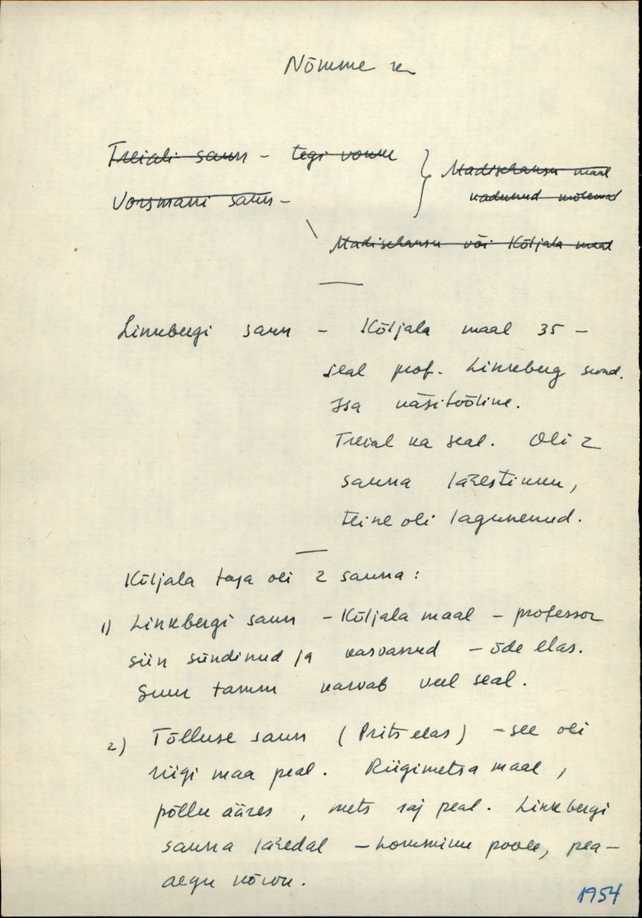 Nõmme
Treiali saun – tegi
Vorsmani saun –
Madisehansu maal
kadunud mõlemad
Madisehansu või Kõljala maal
Linkbergi saun – Kõljala maal 35 –
seal prof. Linkberg sünd.
Isa käsitööline.
Treial ka seal. Oli 2
sauna lähestikku,
teine oli lagunenud.
Kõljala taga oli 2 sauna:
1) Linkbergi saun – Kõljala maal – professor
siin sündinud ja kasvanud – õde elas.
Suur tamm kasvab veel seal.
2) Tõlluse saun (Prits elas) – see oli
riigi maa peal. Riigimetsa maal,
põllu ääres, mets saj peal. Linkbergi
sauna lähedal – hommiku poole, pea-
aegu kõrvu.
1954